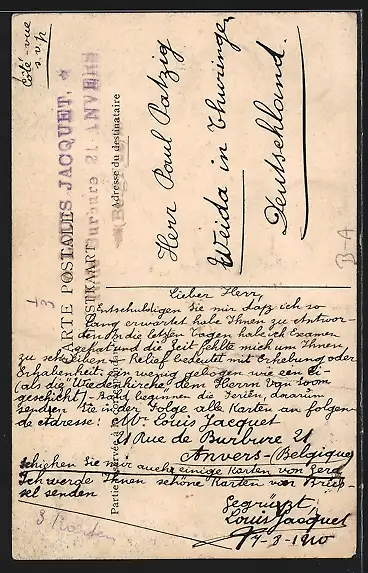 Côté-vue
s.v.p
CARTES POSTALES JACQUET.
Burbure 21 ANVERS
CARTE POSTALE
POSTKAART
Adresse du destinataire
Herr Paul Patzig
Weida in Thuringen
Deutschland.
B-A
1/3
Lieber Herr,
Entschuldigen Sie mir dass ich so
lang erwartet habe Ihnen zu Antwor-
ten. In die letzten Tagen hab ich Examen
gehat und die Zeit fehlte mich um Ihnen,
zu schreiben - Relief bedeutet mit Erhebung oder
Erhabenheit: ein wenig gebogen wie ein Ei-
(als die Wiedenkirche, dem Herrn van Loom
geschickt) - Bald beginnen die Ferien, darum
senden Sie in der Folge alle Karten an folgen-
de Adresse: Mr. Louis Jacquet
21 Rue de Burbure 21
Anvers-(Belgique)
Schicken Sie mir auch einige Karten von Gera
Ich werde Ihnen schöne Karten von Brüs-
sel senden
Gegrüszt,
Louis Jacquet
Partie réservée à la correspondance